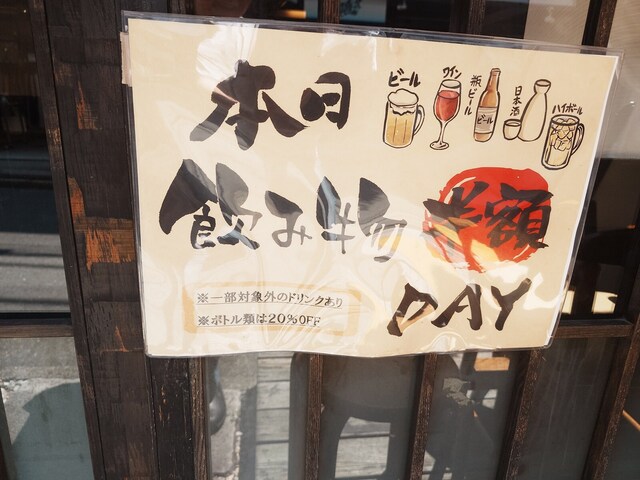 本日
ビール
ワイン
瓶ビール
ビール
日本酒
ハイボール
飲み物 半額
DAY
※一部対象外のドリンクあり
※ボトル類は20%OFF